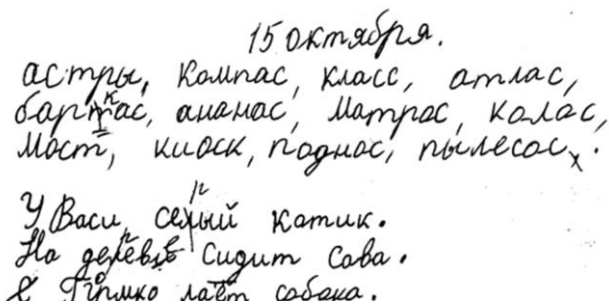 15 октября.
астры, компас, класс, атлас,
баркас, ананас, матрас, калас,
мост, киоск, паднос, пылесос.
У Васи серый катик.
На дереве сидит сава.
громко лает собака.